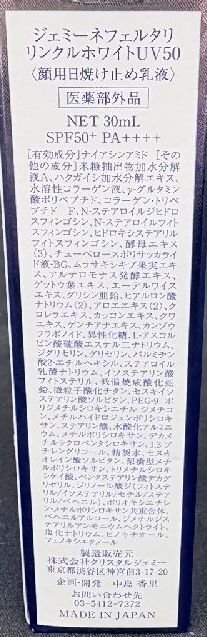 ジェミーネフェルタリ
リンクルホワイトUV50
〈顔用日焼け止め乳液〉
医薬部外品
NET 30mL
SPF50⁺ PA++++
[有効成分]ナイアシンアミド [その
他の成分]米糠抽出物加水分解
液A、ハクガイシ加水分解エキス、
水溶性コラーゲン液、γ-グルタミン
酸ポリペプチド、コラーゲン・トリペ
プチド F、N-ステアロイルジヒドロ
スフィンゴシン、N-ステアロイルフィト
スフィンゴシン、ヒドロキシステアリル
フィトスフィンゴシン、酵母エキス
(3)、チューベローズポリサッカライ
ド液-BG、ムラサキシキブ果実エキ
ス、アルテロモナス発酵エキス、
ゲットウ葉エキス、エーデルワイス
エキス、グリシン亜鉛、ヒアルロン酸
ナトリウム(2)、アロエエキス(2)、ク
ロレラエキス、カッコンエキス、クワ
エキス、ゲンチアナエキス、カンゾウ
フラボノイド、異性化糖、L-アスコル
ビン酸硫酸エステル二ナトリウム、
ジグリセリン、グリセリン、パルミチン
酸2-エチルヘキシル、ステアロイル
乳酸ナトリウム、イソステアリン酸
フィトステリル、低温焼成酸化亜
鉛、微粒子酸化チタン、セスキイソ
ステアリン酸ソルビタン、PEG-9ポリ
ジメチルシロキシエチル ジメチコ
ン、メチルハイドロジェンポリシロキ
サン、ステアリン酸、水酸化アルミニ
ウム、メチルポリシロキサン、デカメ
チルシクロペンタシロキサン、1,3-ブ
チレングリコール、精製水、セスキ
オレイン酸ソルビタン、架橋型メチ
ルポリシロキサン、トリメチルシロキ
シケイ酸、
塩化ナトリウム、ヒノキチオール、
フェノキシエタノール
製造販売元
株式会社クリスタルジェミー
東京都渋谷区神宮前3-17-20
企画・開発 中島 香里
お問い合わせ先
03-5412-7272
MADE IN JAPAN